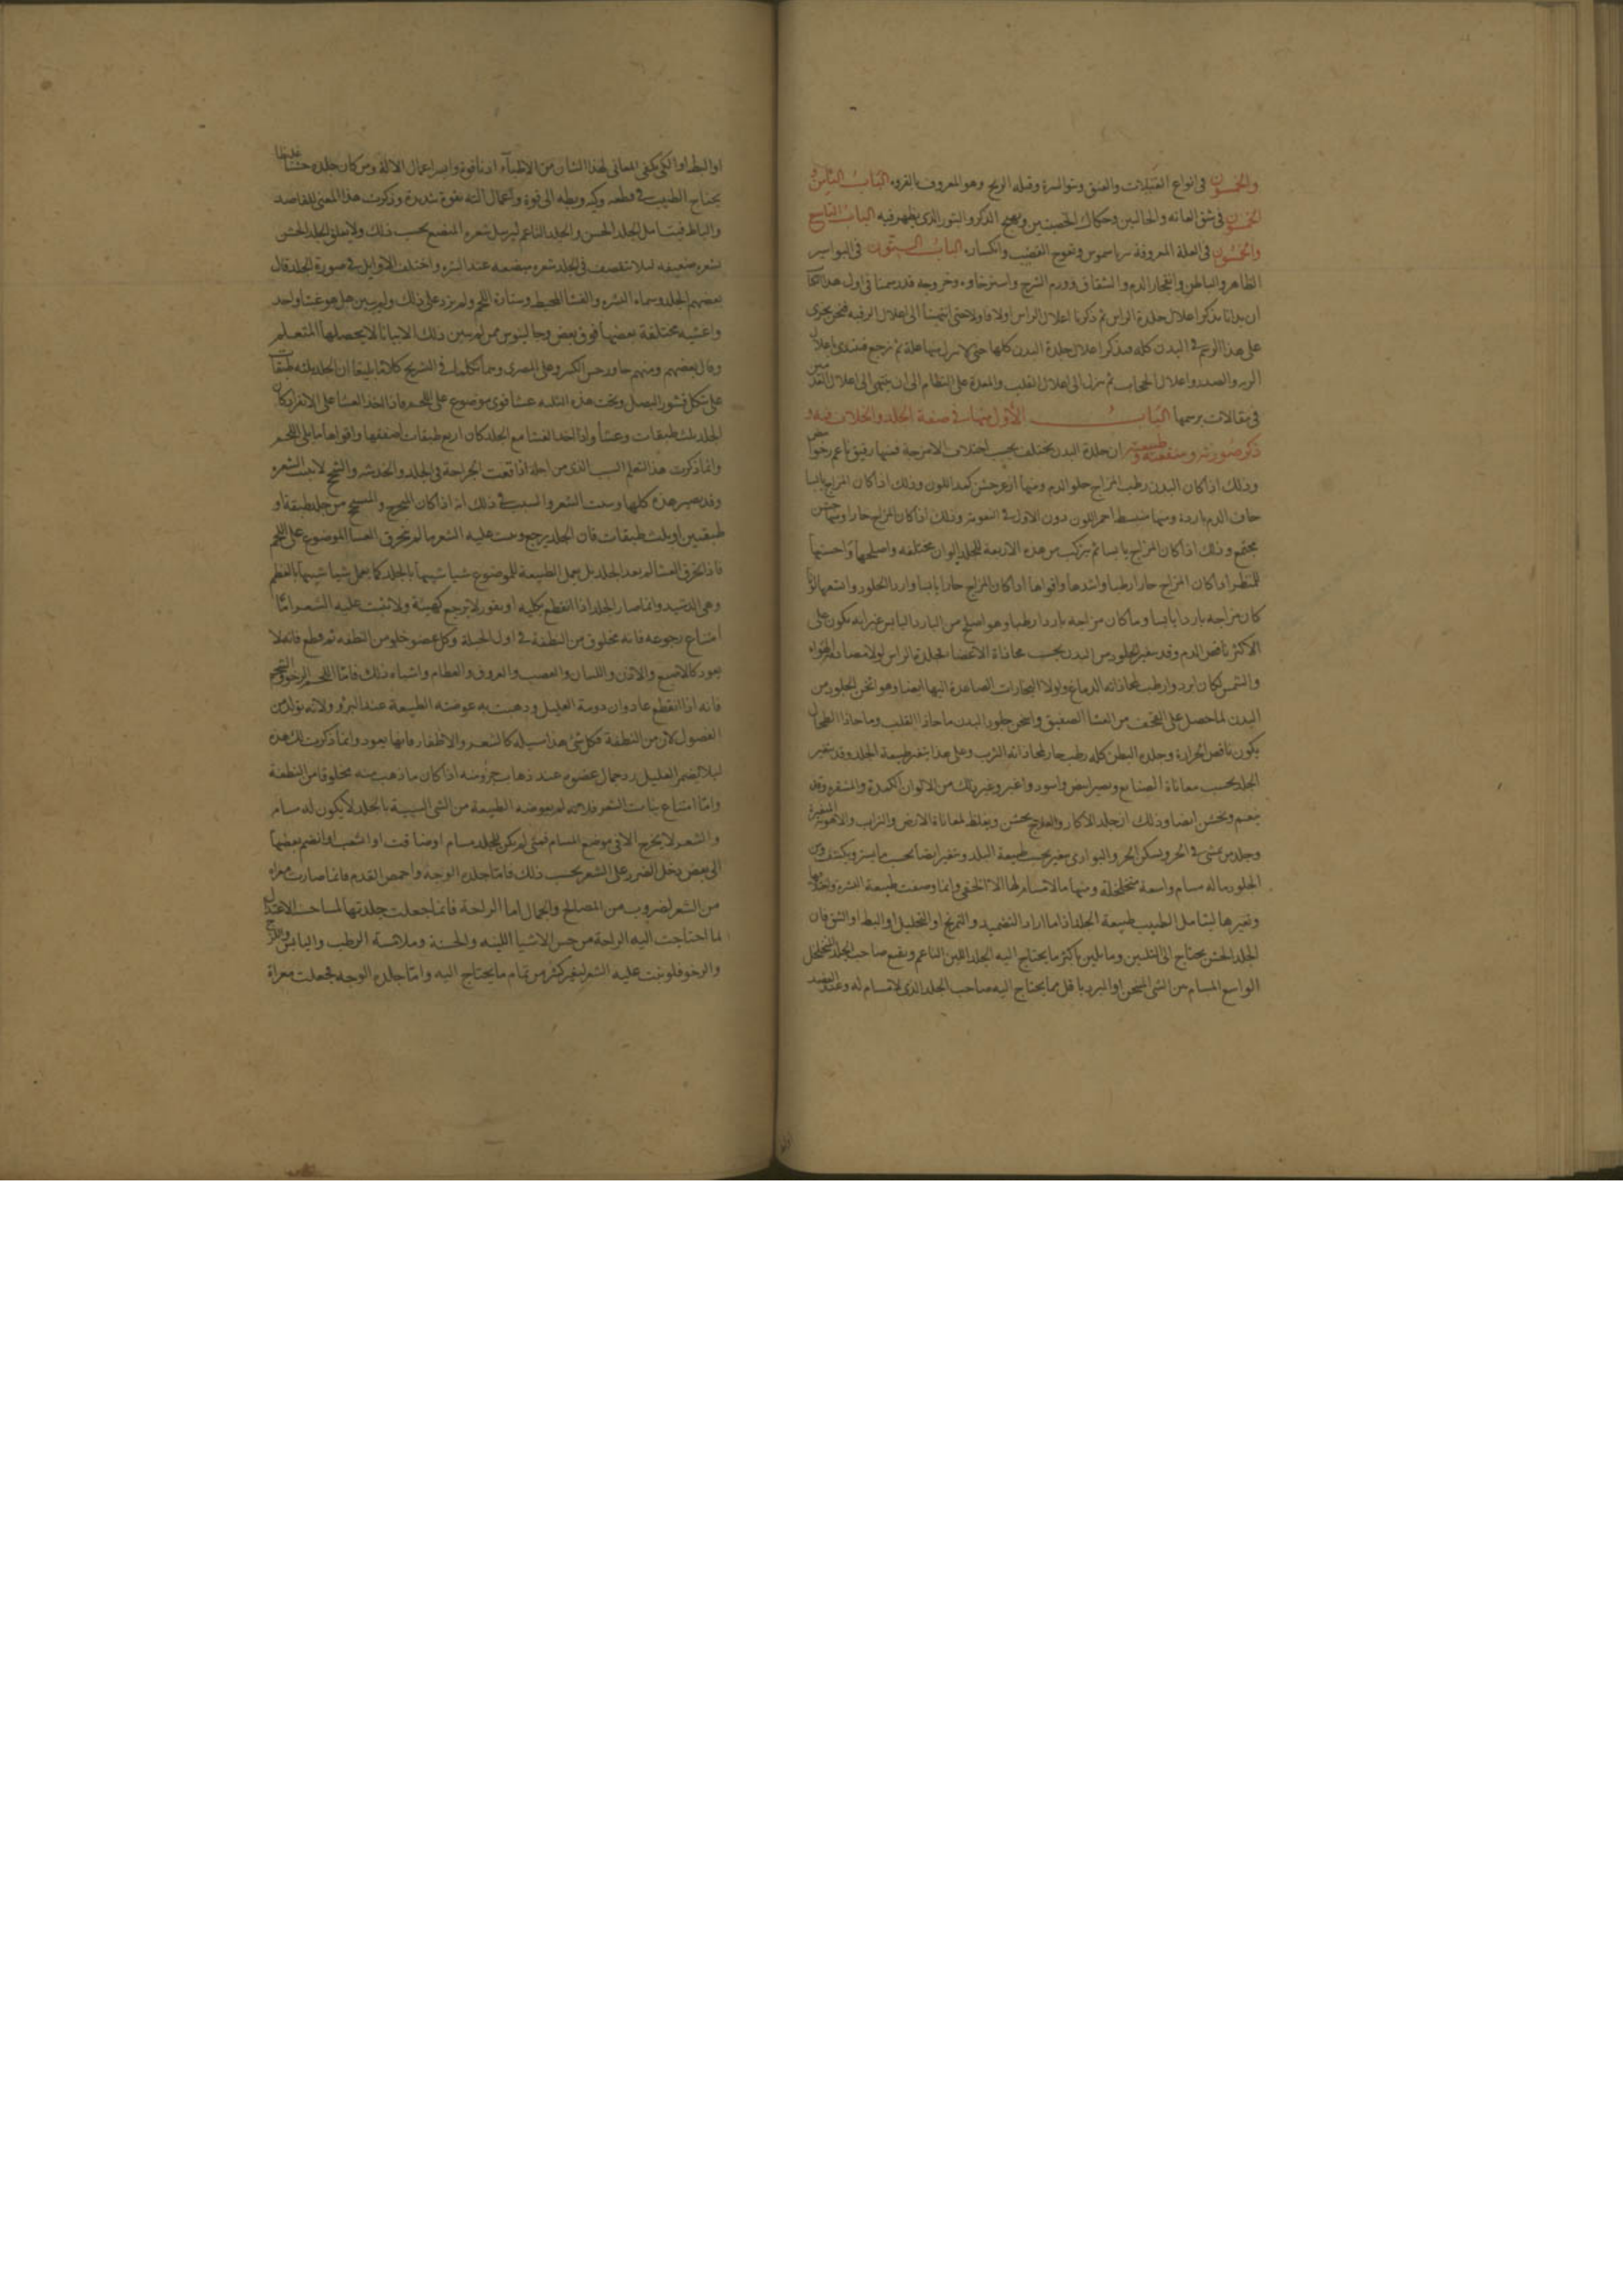 والخمسون في انواع القيلات والفتق ونتو السرة وقيلة الريح وهو المعروف بالقرو الباب الثامن و
الخمسون في شق العانه والحالبين وحكاك الخصيتين وتهيج الذكر والبثور الذي يظهر فيه الباب التاسع
والخمسون في العلة المعروفة برياسموس وتعوج القضيب وانكساره الباب الستون في البواسير
الظاهر والباطن وانفجار الدم والشقاق وورم الشرج واسترخاوه وخروجه قد رسمنا في اول هذا الكتاب
ان بدانا بذكر اعلال جلدة الراس ثم ذكرنا اعلال الراس اولا فاولا حتى انتهينا الى اعلال الرقبه فنحن نجرى
على هذا الرسم في البدن كله فنذكر اعلال جلدة البدن كلها حتى لا يترك منها علة ثم نرجع فنبتدى باعلال
الريه والصدر واعلال الحجاب ثم ننزل الى اعلال القلب والمعدة على النظام الى ان ينتهى الى اعلال القدمين
في مقالات نرسمها الباب الأول منها في صفة الجلد والخلاف فيه و
ذكر صورته ومنفعته وطبيعته ان جلدة البدن يختلف بحسب اختلاف الامزجة فمنها رقيق ناعم رخو ابيض
وذلك اذا كان البدن رطب المزاج حلو الدم ومنها ازعر خشن كمد اللون وذلك اذا كان المزاج يابسا
جاف الدم بارده ومنها منبسط احمر اللون دون الاول في النعومة وذلك اذا كان المزاج حارا ومنها خشن
مجتمع وذلك اذا كان المزاج يابسا ثم يتركب من هذه الاربعة للجلد الوان مختلفه واصلحها واحسنها
للمنظر اذا كان المزاج حارا رطبا واشدها واقواها اذا كان المزاج حارا يابسا واردا الجلود واشعها لونا
كان مزاجه باردا يابسا وما كان مزاجه باردا رطبا وهو اصلح من البارد اليابس غير انه يكون على
الاكثر ناقص الدم وقد يتغير الجلود من البدن بحسب محاذاة الاعضا فجلدة الراس لولا مصادفته الهواء
والشمس لكان ابرد وارطب لمحاذاته الدماغ ولولا البخارات الصاعدة اليها ايضا وهو اثخن الجلود من
البدن لما حصل على القحف من الغشا الصفيق واسخن جلود البدن ما حاذا القلب وما حاذا الطحال
يكون ناقص الحرارة وجلده البطن كله رطب حار لمحاذاته الثرب وعلى هذا يتغير طبيعة الجلد وقد يتغير
الجلد بحسب معاناة الصنايع ويصير ابيض واسود واغبر وغير ذلك من الالوان الكمدة والمشفره وقد
ينعم ويخشن ايضا وذلك ان جلد الاكار والفلاح يخشن ويغلظ لمعاناة الارض والتراب والاهوية المتغيرة
وجلد من يمشى في الحر ويسكن الحر والبوادى يتغير بحسب طبيعة البلد ويتغير ايضا بحسب ما يستر ويكشف ومن
الجلود ماله مسام واسعة متخلخلة ومنها ما لا مسام لها الا الخفى وانما وصفت طبيعة البشرة واختلافها
وتغيرها ليتامل الطبيب طبيعة الجلد اذا ما اراد التضميد والتمريخ او التحليل او البط او الشق فان
الجلد الخشن يحتاج الى التليين وما يلين باكثر ما يحتاج اليه الجلد اللين الناعم وينفع صاحب الجلد المتخلخل
الواسع المسام من الشى المسخن او المبرد باقل مما يحتاج اليه صاحب الجلد الذى لا مسام له وعند الفصد
او البط او الكى يكفى المعانى لهذا الشان من الاطباء ادنا قوة وايسر اعمال الالة ومن كان جلده خشنا غليظا
يحتاج الطبيب في قطعه وكيه وبطه الى قوة واعمال الته بقوة شديدة وذكرت هذا المعنى للفاصد
والباط فيتامل الجلد الخشن والجلد الناعم ليرسل شعره المبضع بحسب ذلك ولا يعلق الجلد الخشن
بشعره ضعيفه ليلا تنقصف في الجلد شعره مبضعه عند البثره واختلف الاوايل في صورة الجلد قال
بعضهم الجلد وسماه البشره والغشا المحيط وستارة اللحم ولم يزد على ذلك ولم يبين هل هو غشا واحد
واغشيه مختلفة بعضها فوق بعض وجالينوس ممن لم يبين ذلك الا بيانا لا يحصلها المتعلم
وقال بعضهم ومنهم حاورحس الكبير وعلى المصرى وهما تكلما في التشريح كلاما بليغا ان الجلد ثلثه طبقات
على شكل قشور البصل وتحت هذه الثلثه غشا قوى موضوع على اللحم فاذا اتخذ الغشا على الانفراد كان
الجلد ثلث طبقات وغشا واذا اتخذ الغشا مع الجلد كان اربع طبقات اصفقها واقواها ما يلى اللحم
وانما ذكرت هذا لتعلم السبب الذى من اجله اذا وقعت الجراحة في الجلد والخدشه والشج لا ينبت الشعر
وقد يصير هذه كلها وينبت الشعر والسبب في ذلك انه اذا كان الجرح والسحج من جلد طبقة او
طبقتين او ثلث طبقات فان الجلد يرجع وينبت عليه الشعر ما لم يخرق الغشا الموضوع على اللحم
فاذا انخرق الغشا لم يعد الجلد بل يعمل الطبيعة للموضوع شيا شبيها بالجلد كما يعمل شيا شبيها بالعظم
وهي الدشبد وانما صار الجلد اذا انقطع بكليه او بغور لا يرجع كهيئة ولا تنبت عليه الشعر اما
امتناع رجوعه فانه مخلوق من النطفة في اول الجبلة وكل عضو خلق من النطفه ثم قطع فانه لا
يعود كالاصبع والاذن واللسان والعصب والعروق والعظام واشباه ذلك فاما اللحم الرخو والشحم
فانه اذا انقطع عاد وان دومة العليل وذهبت به عوضته الطبيعة عند البرؤ ولانه يولد من
الفضول لا من النطفة فكل شى هذا سبيله كالشعر والاظفار فانها يعود وانما ذكرت لك هذه
ليلا يضمن العليل رد جمال عضوه عند ذهاب جزؤ منه اذا كان ما ذهب منه مخلوقا من النطفة
واما امتناع نبات الشعر فلانه لم يعوضه الطبيعة من الشى الشبيه بالجلد لا يكون له مسام
والشعر لا يخرج الا في موضع المسام فمتى لم يكن للجلد مسام او ضاقت او انشعب او انضم بعضها
الى بعض دخل الضرر على الشعر بحسب ذلك فاما جلده الوجه واخمص القدم فانما صارت معراه
من الشعر لضروب من المصالح والجمال اما الراحة فانما جعلت جلدتها لمساحت الاعتدال
لما احتاجت اليه الراحة من حس الاشيا اللينه والخشنة وملامسة الرطب واليابس واللزج
والرخو فلو نبت عليه الشعر لتغير كثير من تمام ما يحتاج اليه واما جلده الوجه فجعلت معراة